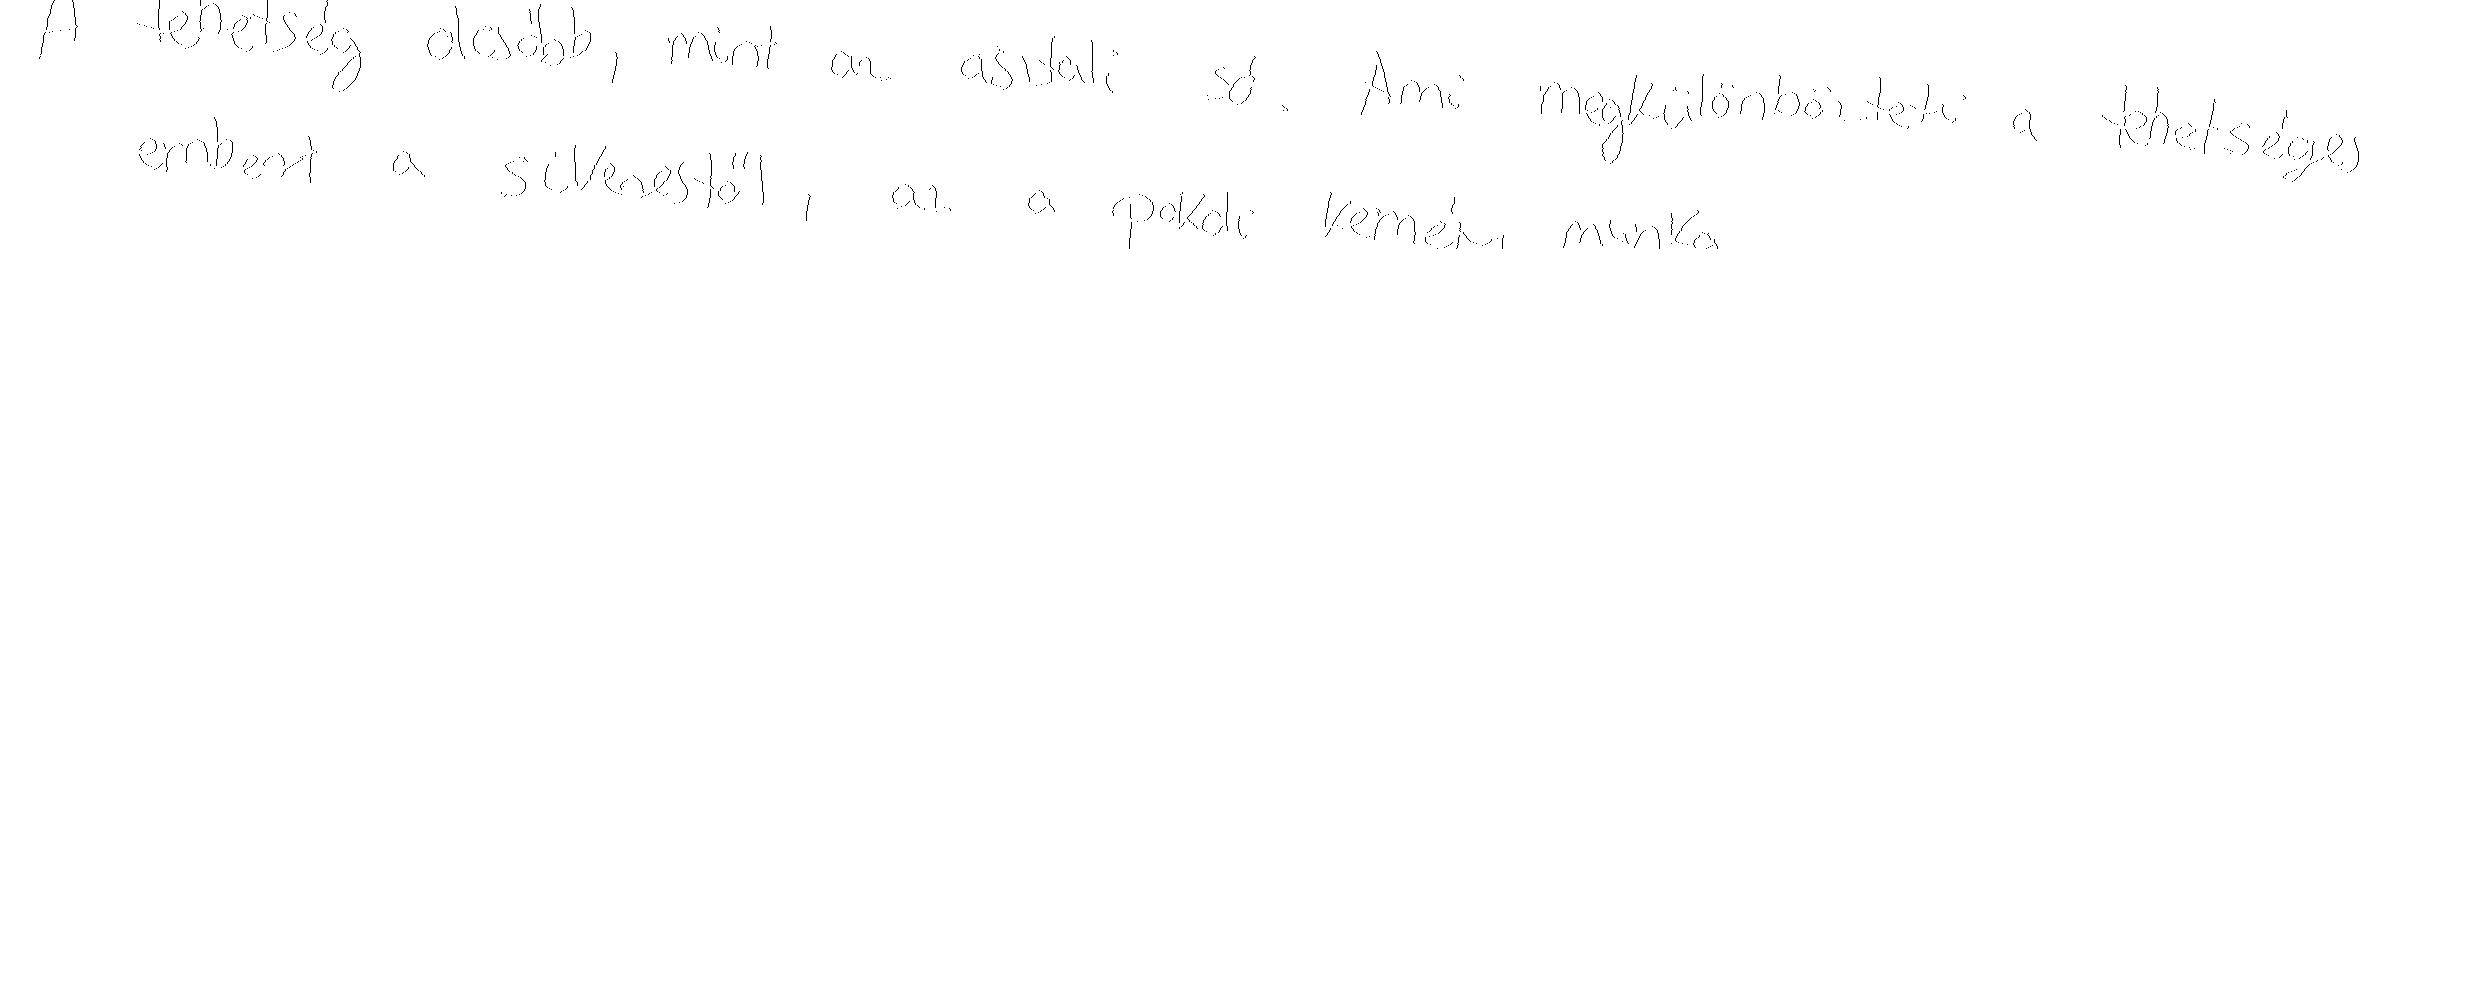 A tehetség olcsóbb, mint az asztali só. Ami megkülönbözteti a tehetséges
embert a sikerestől, az a pokoli kemény munka